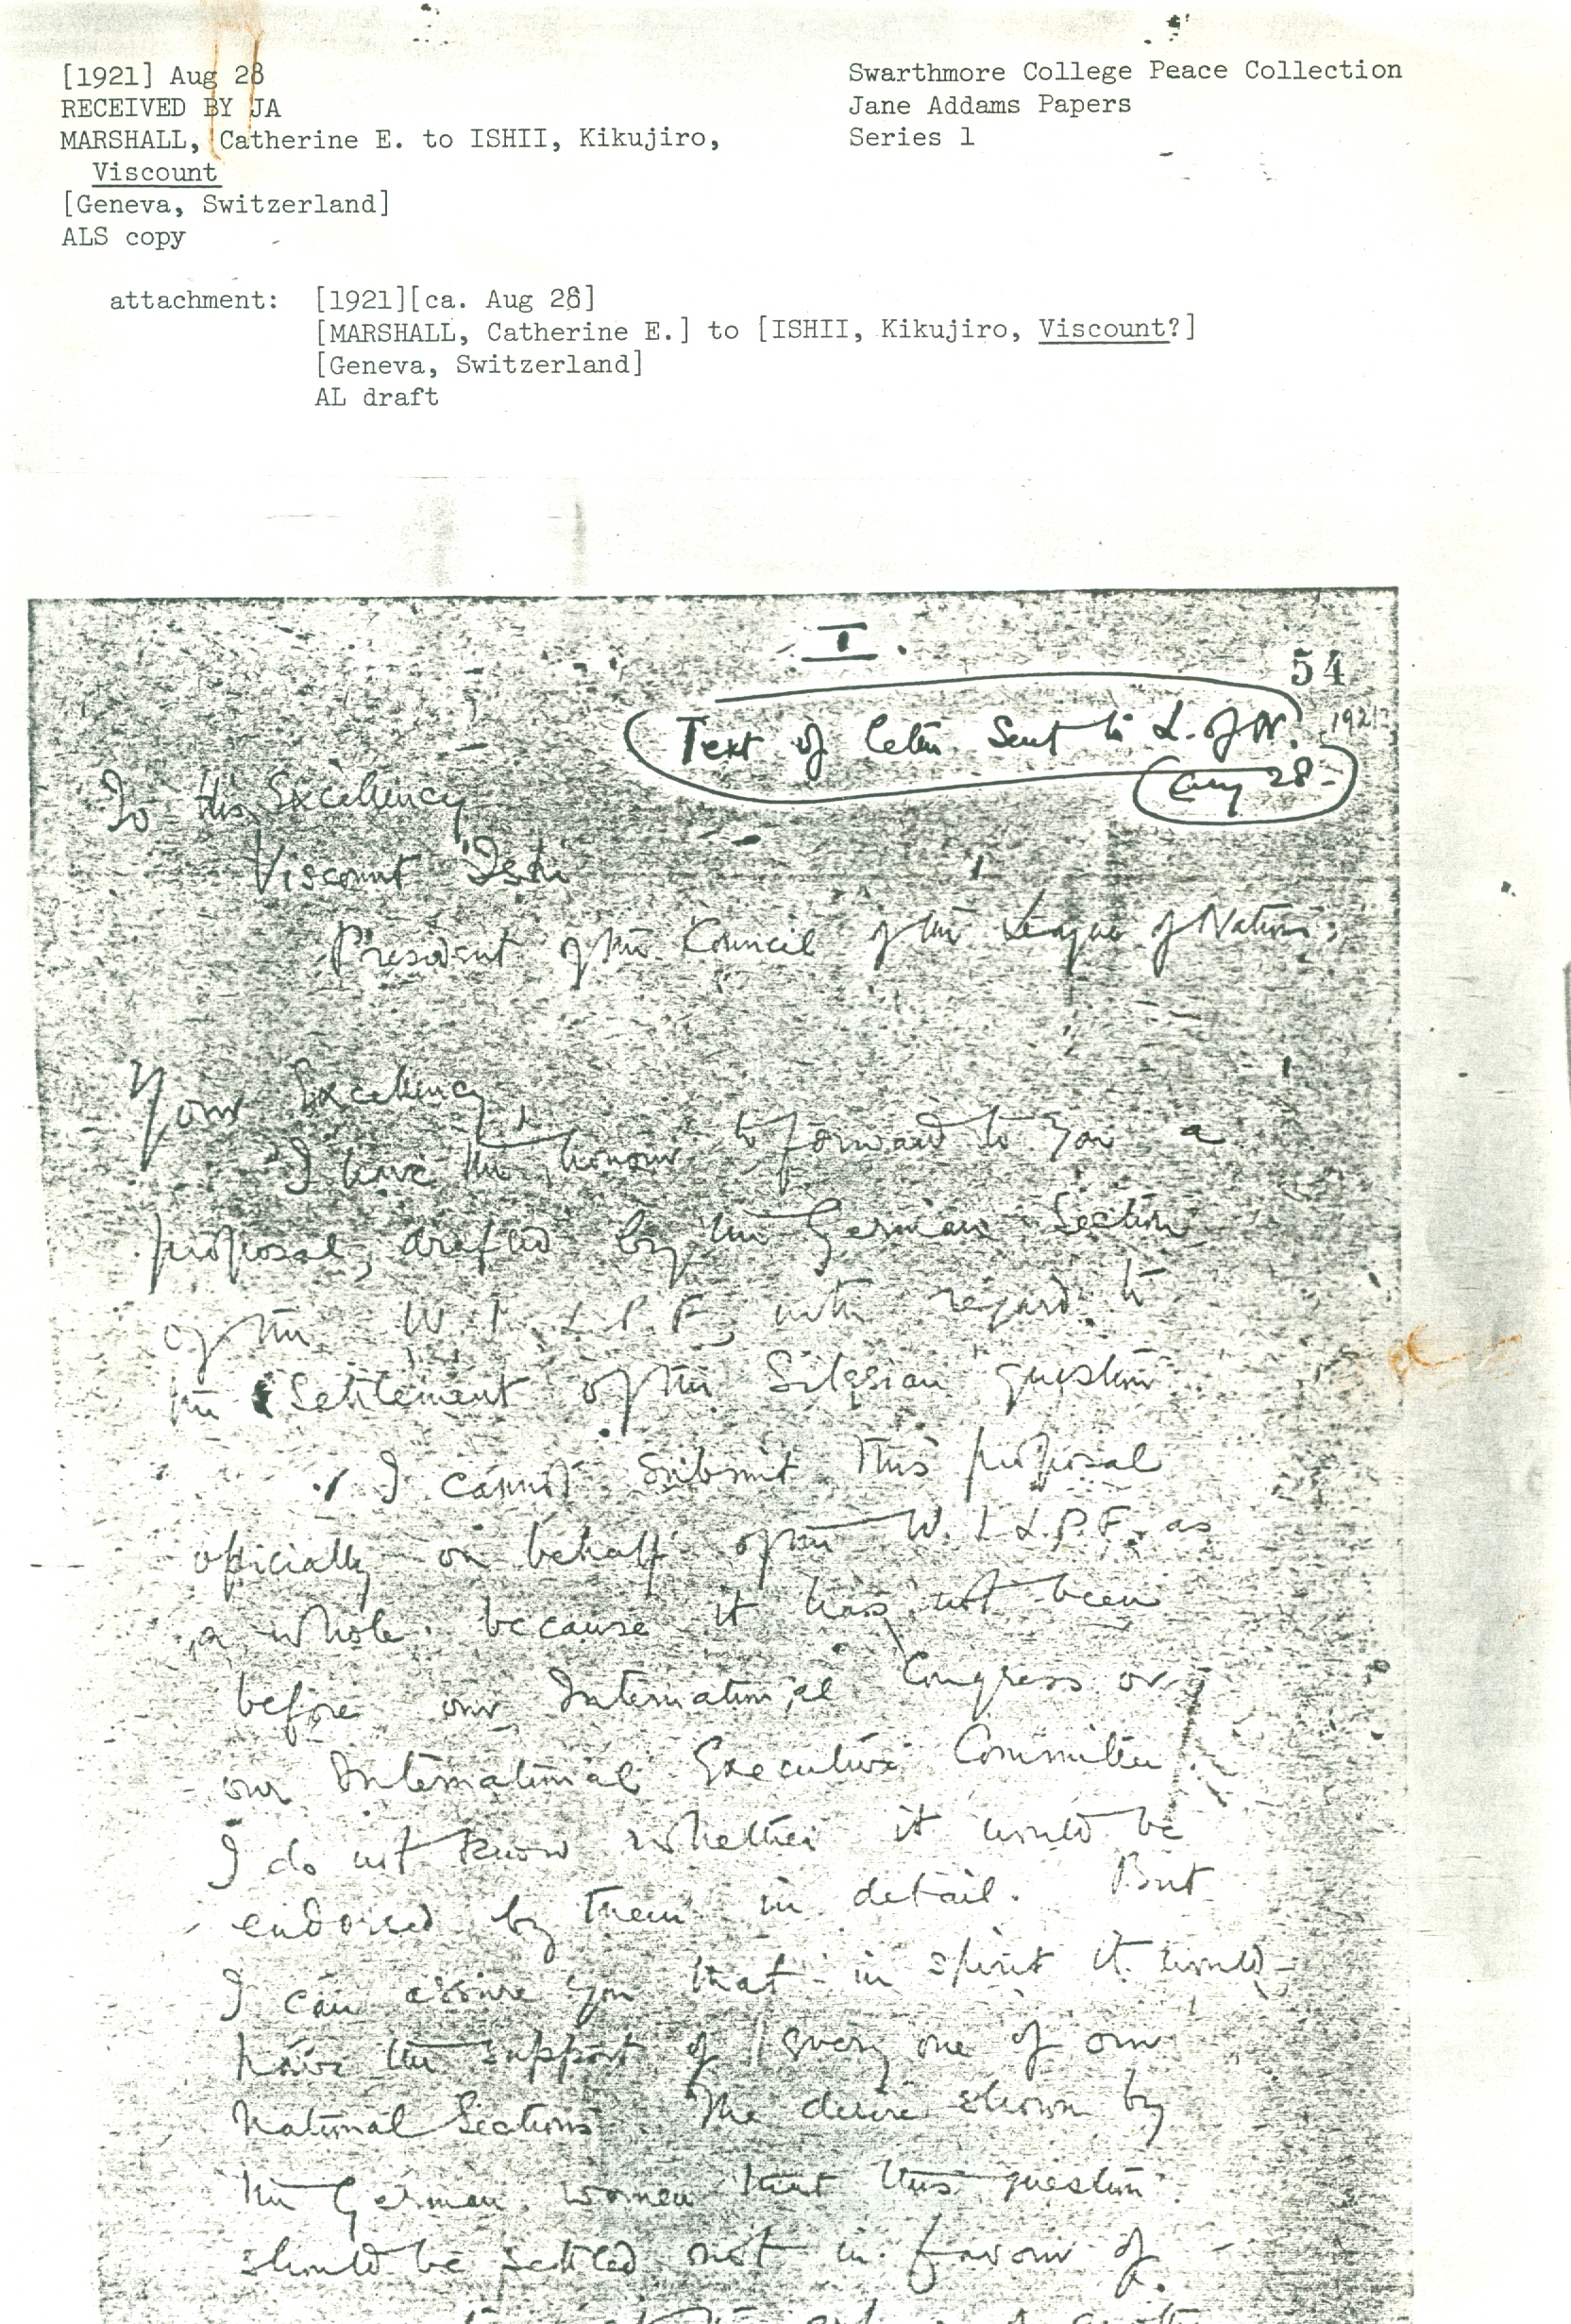 [1921] Aug 28
RECEIVED BY JA
MARSHALL, Catherine E. to ISHII, Kikujiro,
Viscount
[Geneva, Switzerland]
ALS copy
Swarthmore College Peace Collection
Jane Addams Papers
Series 1
attachment: [1921][ca. Aug 28]
[MARSHALL, Catherine E.] to [ISHII, Kikujiro, Viscount?]
[Geneva, Switzerland]
AL draft
I.
54
Text of letter sent to L. of N. 1921?
Aug 28-
To His Excellency
Viscount Ishi
President of the Council of the League of Nations,
Your Excellency,
I have the honour to forward to you a
proposal, drafted by the German Section
of the W.I.L.P.F, with regard to
the Settlement of the Silesian question
I cannot submit this proposal
officially on behalf of the W.I.L.P.F. as
a whole because it has not been
before our International Congress or
our International Executive Committee.
I do not know whether it would be
endorsed by them in detail. But
I can assure you that in spirit it would
have the support of every one of our
National Sections. The desire shown by
the German women that this question
should be settled not in favour of